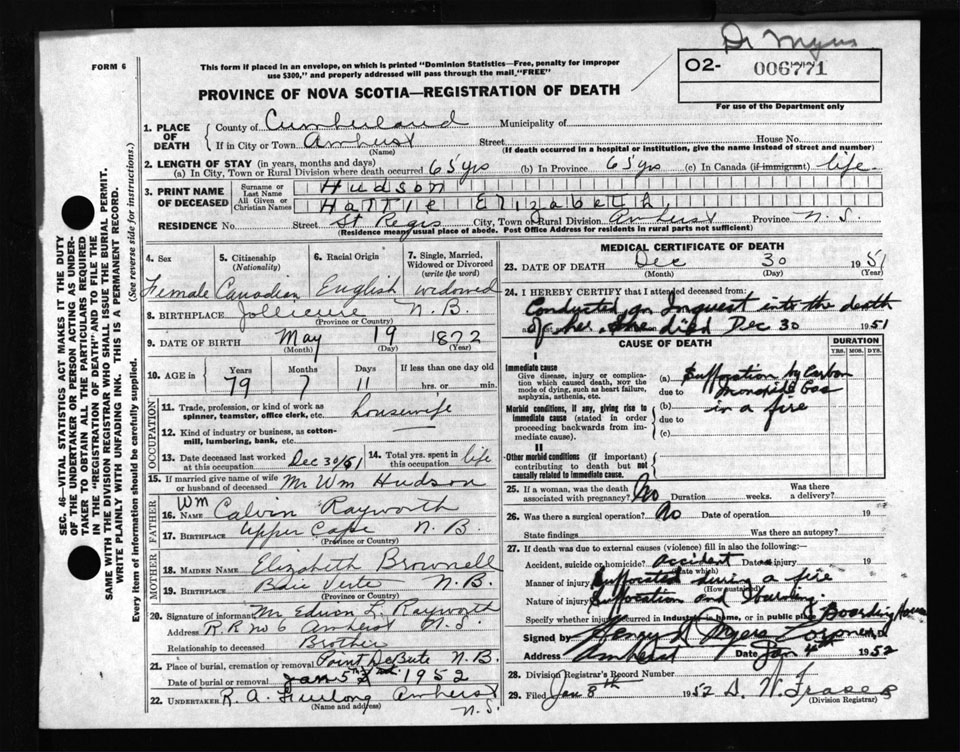 Dr Myers
FORM 6
This form if placed in an envelope, on which is printed "Dominion Statistics—Free, penalty for improper
use $300," and properly addressed will pass through the mail "FREE"
O2- 006771
For use of the Department only
PROVINCE OF NOVA SCOTIA—REGISTRATION OF DEATH
1. PLACE OF DEATH
County of Cumberland Municipality of
If in City or Town Amherst Street House No.
(Name) (If death occurred in a hospital or institution, give the name instead of street and number)
2. LENGTH OF STAY (in years, months and days)
(a) In City, Town or Rural Division where death occurred 65 yrs (b) In Province 65 yrs (c) In Canada (if immigrant) life
3. PRINT NAME OF DECEASED
Surname or Last Name Hudson
All Given or Christian Names Hattie Elizabeth
RESIDENCE No. Street St Regis City, Town or Rural Division Amherst Province N.S.
(Residence means usual place of abode. Post Office Address for residents in rural parts not sufficient)
4. Sex 5. Citizenship (Nationality) 6. Racial Origin 7. Single, Married, Widowed or Divorced (write the word)
Female Canadian English widowed
8. BIRTHPLACE Jollicure N.B.
(Province or Country)
9. DATE OF BIRTH May 19 1872
(Month) (Day) (Year)
10. AGE in Years Months Days If less than one day old
79 7 11 hrs. or min.
OCCUPATION
11. Trade, profession, or kind of work as spinner, teamster, office clerk, etc. housewife
12. Kind of industry or business, as cotton-mill, lumbering, bank, etc.
13. Date deceased last worked at this occupation Dec 30/51 14. Total yrs. spent in this occupation life
15. If married give name of wife or husband of deceased Mr Wm Hudson
FATHER
16. NAME Wm Calvin Rayworth
17. BIRTHPLACE Upper Cape N.B.
(Province or Country)
MOTHER
18. MAIDEN NAME Elizabeth Brownell
19. BIRTHPLACE Baie Verte N.B.
(Province or Country)
20. Signature of informant Mr Edison L. Rayworth
Address R.R no 6 Amherst N.S.
Relationship to deceased Brother
21. Place of burial, cremation or removal Point DeBute N.B.
Date of burial or removal Jan 1952
22. UNDERTAKER R. A. Furlong Amherst N.S.
(Name and address)
MEDICAL CERTIFICATE OF DEATH
23. DATE OF DEATH Dec 30 1951
(Month) (Day) (Year)
24. I HEREBY CERTIFY that I attended deceased from:
Conducted an Inquest into the death
of her. She died Dec 30 1951
CAUSE OF DEATH DURATION
YRS. MOS. DYS.
I
Immediate cause
Give disease, injury or complication which caused death, not the mode of dying, such as heart failure, asphyxia, asthenia, etc.
(a) Suffocation by Carbon
due to Monoxide Gas
Morbid conditions, if any, giving rise to immediate cause (stated in order proceeding backwards from immediate cause).
(b) in a fire
due to
(c)
II
Other morbid conditions (if important) contributing to death but not causally related to immediate cause.
25. If a woman, was the death associated with pregnancy? No Duration weeks. Was there a delivery?
26. Was there a surgical operation? No Date of operation 19
State findings Was there an autopsy?
27. If death was due to external causes (violence) fill in also the following:—
Accident, suicide or homicide? Accident Date of injury 19
(State which)
Manner of injury Suffocated during a fire
(How sustained)
Nature of injury Suffocation and Burning.
Specify whether injury occurred in industry, in home, or in public place Boarding house
Signed by Henry D. Myers Coroner
Address Amherst Date Jan 4th 1952
28. Division Registrar's Record Number
29. Filed Jan 8th 1952 D. W. Fraser
(Division Registrar)
SEC. 46—VITAL STATISTICS ACT MAKES IT THE DUTY
OF THE UNDERTAKER OR PERSON ACTING AS UNDERTAKER
TO OBTAIN ALL THE PARTICULARS REQUIRED
IN THE "REGISTRATION OF DEATH" AND TO FILE THE
SAME WITH THE DIVISION REGISTRAR WHO SHALL ISSUE THE BURIAL PERMIT.
WRITE PLAINLY WITH UNFADING INK. THIS IS A PERMANENT RECORD.
Every item of information should be carefully supplied. (See reverse side for instructions.)